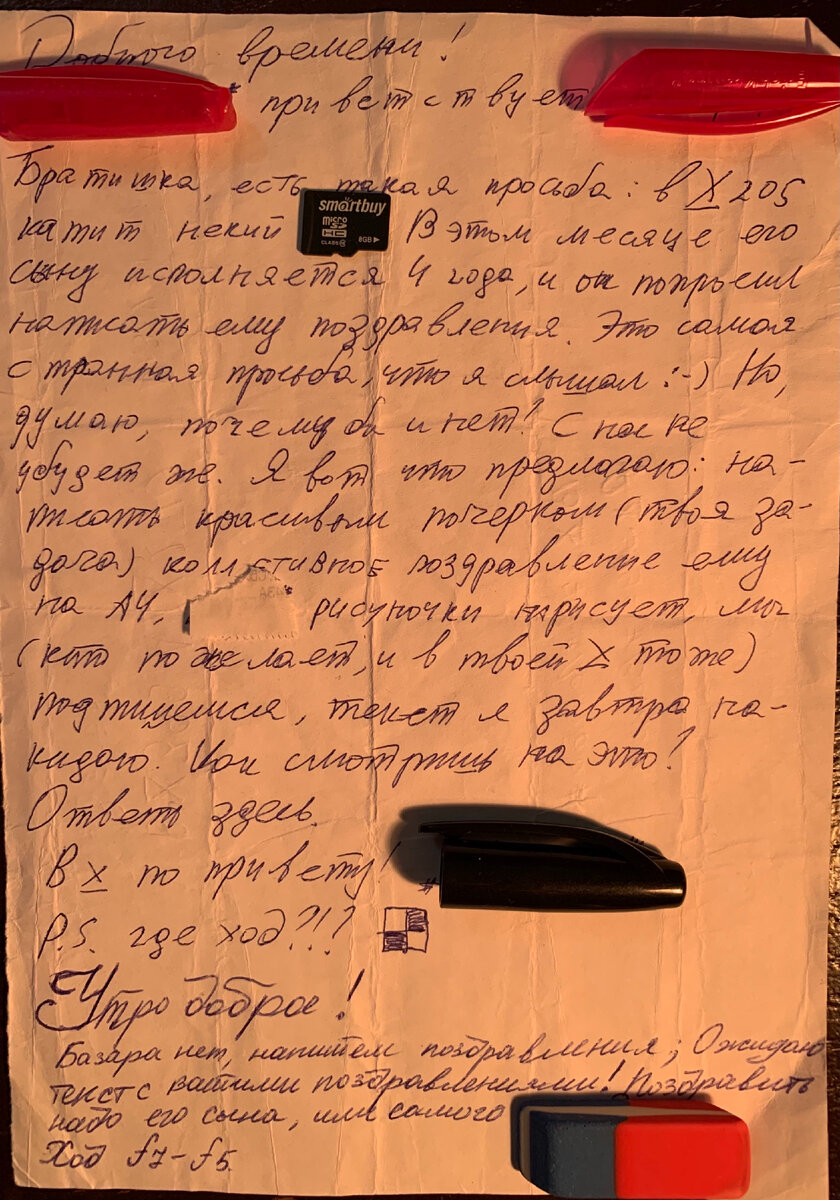 Доброго времени!
приветствует
Братишка, есть такая просьба: в X 205
катит некий
smartbuy
micro
SD
HC
CLASS 10
8GB
В этом месяце его
сыну исполняется 4 года, и он попросил
написать ему поздравления. Это самая
странная просьба, что я слышал :-) Но,
думаю, почему бы и нет? С нас не
убудет же. Я вот что предлагаю: на-
писать красивым почерком (твоя за-
дача) колл ктивное поздравление ему
на А4, рисуночки нарисует, мы
(кто пожелает, и в твоей X тоже)
подпишемся, текст я завтра на-
кидаю. Как смотришь на это?
Ответь здесь.
В x по привету!
P.S. где ход?!!?
Утро доброе!
Базара нет, напишем поздравления; Ожидаю
текст с вашими поздравлениями! Поздравить
надо его сына, или самого
Ход f7-f5